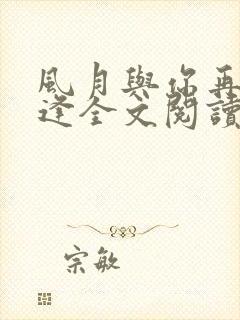 風月與你再
逢全文閱讀
宗敏